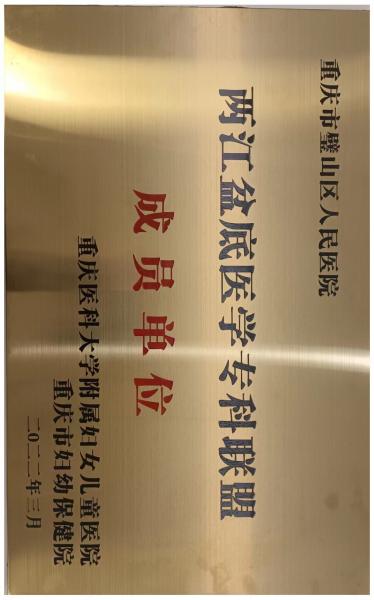 重庆市璧山区人民医院
两江盆底医学专科联盟
成员单位
重庆医科大学附属妇女儿童医院
重庆市妇幼保健院
二〇二二年三月